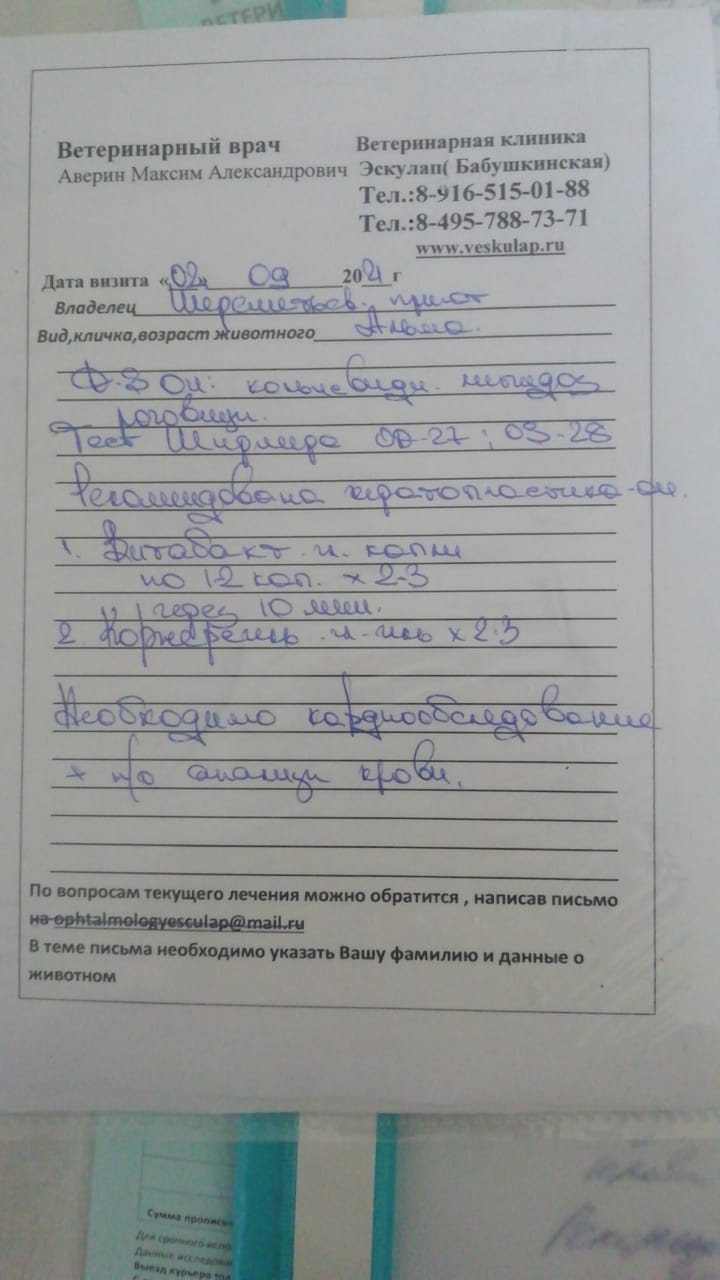 ВЕТЕРИ
Ветеринарный врач
Аверин Максим Александрович
Ветеринарная клиника
Эскулап( Бабушкинская)
Тел.:8-916-515-01-88
Тел.:8-495-788-73-71
www.veskulap.ru
Дата визита «02» 09 2021 г
Владелец Шереметьев. приют
Вид,кличка,возраст животного Альма.
Д-З ОИ: кольцевидн.
роговицы.
Тест Ширмера OD-27; OS-28
Рекомендована кератопластика-ou.
1. Витабакт г. капли
по 1-2 кап. х 2-3
/через 10 мин.
2. Корнерегель х 2-3
Необходимо кардиообследование
+ п/о анализы крови.
По вопросам текущего лечения можно обратится , написав письмо
на ophtalmologyesculap@mail.ru
В теме письма необходимо указать Вашу фамилию и данные о
животном
Сумма прописью
Для срочного
Данные
Выезд курьера
крови